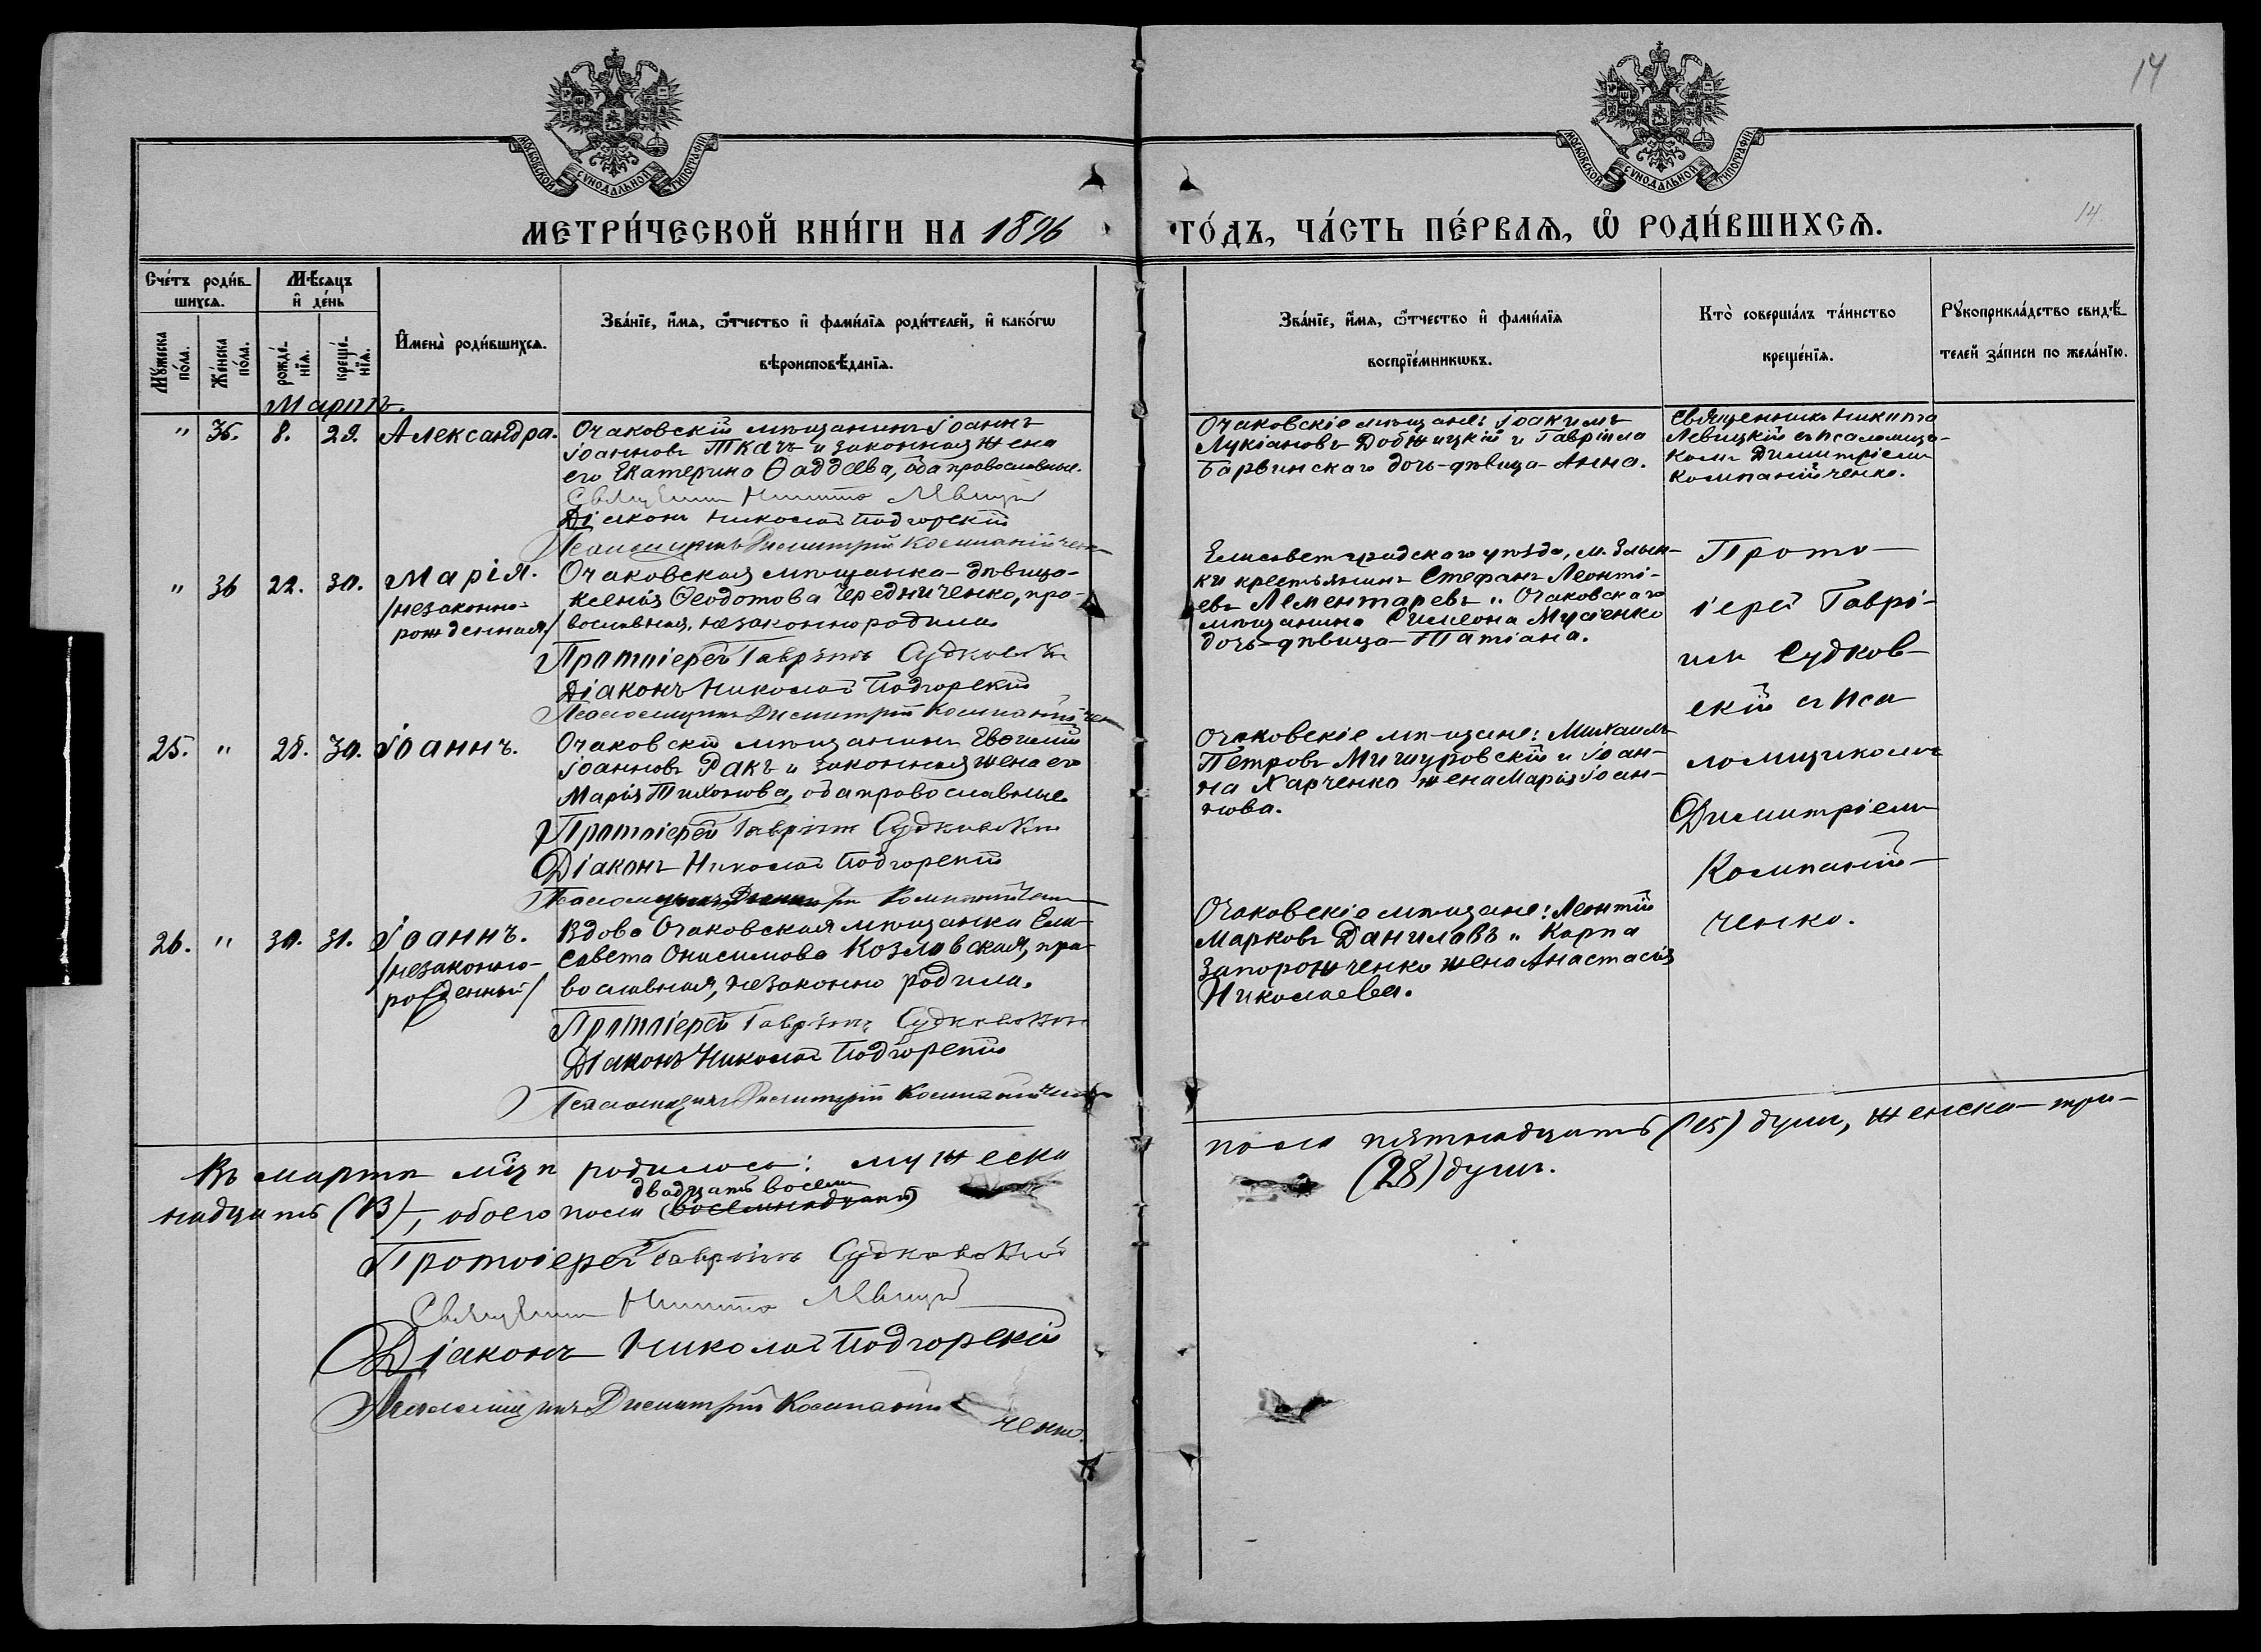 14
МОСКОВСКОЙ СѴНОДАЛЬНОЙ ТИПОГРАФІИ
МОСКОВСКОЙ СѴНОДАЛЬНОЙ ТИПОГРАФІИ
МЕТРИ́ЧЕСКОЙ КНИ́ГИ НА 1896
ГО́ДЪ, ЧА́СТЬ ПЕ́РВАѦ, Ѡ҆ РОДИ́ВШИХСѦ.
14.
Сче́тъ роди́в-
шихсѧ.
Мѣ́сѧцъ
и҆ де́нь
Мꙋ́жеска
по́ла.
Же́нска
по́ла.
рожде́-
нїѧ.
креще́-
нїѧ.
И҆мена̀ роди́вшихсѧ.
Зва́нїе, и҆́мѧ, ѻ҆́тчество и҆ фами́лїѧ роди́телей, и҆ како́гѡ
вѣроисповѣ́данїѧ.
Зва́нїе, и҆́мѧ, ѻ҆́тчество и҆ фами́лїѧ
воспрїе́мникѡвъ.
Кто̀ соверша́лъ та́инство
креще́нїѧ.
Рꙋкоприкла́дство свидѣ́-
телей за́писи по жела́нїю.
Мартъ.
" 35. 8. 29. Александра.
Очаковскій мѣщанинъ Іоаннъ
Іоанновъ Ткачъ и законная жена
его Екатерина Ѳаддѣева, оба православные.
Священникъ Никита Левицкій
Діаконъ Николай Подгорскій
Псаломщикъ Димитрій Компанійченко
Очаковскіе мѣщане: Іоакимъ
Лукіановъ Добжицкій и Гавріила
Барвинскаго дочь-дѣвица-Анна.
Священникъ Никита
Левицкій съ псаломщи-
комъ Димитріемъ
Компанійченко.
" 36 22. 30. Марія.
/незаконно-
рожденная/
Очаковская мѣщанка-дѣвица-
Ксенія Ѳеодотова Чередниченко, пра-
вославная, незаконно родила.
Протоіерей Гавріилъ Судковскій
Діаконъ Николай Подгорскій
Псаломщикъ Димитрій Компанійчен
Елисаветградскаго уѣзда, м. Злын-
ки крестьянинъ Стефанъ Леонті-
евъ Лементаревъ " Очаковскаго
мѣщанина Симеона Мусіенко
дочь-дѣвица-Татіана.
Прото-
іерей Гаврі-
илъ Судков-
скій съ пса-
ломщикомъ
Димитріемъ
Компаній-
ченко.
25. " 28. 30. Іоаннъ.
Очаковскій мѣщанинъ Евѳимій
Іоанновъ Ракъ и законная жена его
Марія Тихонова, оба православные.
Протоіерей Гавріилъ Судковскій
Діаконъ Николай Подгорскій
Псаломщикъ Димитрій Компанійчен
Очаковскіе мѣщане: Михаилъ
Петровъ Мишуровскій и Іоан-
на Харченко жена Марія Іоан-
нова.
26. " 30. 31. Іоаннъ.
/незаконно-
рожденный/
Вдова Очаковская мѣщанка Ели-
савета Онисимова Козловская, пра-
вославная, незаконно родила.
Протоіерей Гавріилъ Судковскій
Діаконъ Николай Подгорскій
Псаломщикъ Димитрій Компанійчен
Очаковскіе мѣщане: Леонтій
Марковъ Даниловъ " Карпа
Запорожченко жена Анастасія
Николаева.
Въ мартѣ мѣцѣ родилось: мужеска
пола пятнадцать (15) душъ, женска - три-
двадцать восемь
надцать (13) -, обоего пола (восемнадцать)
(28) душъ.
Протоіерей Гавріилъ Судковскій
Священникъ Никита Левицкій
Діаконъ Николай Подгорскій
Псаломщикъ Димитрій Компаній-
ченко.